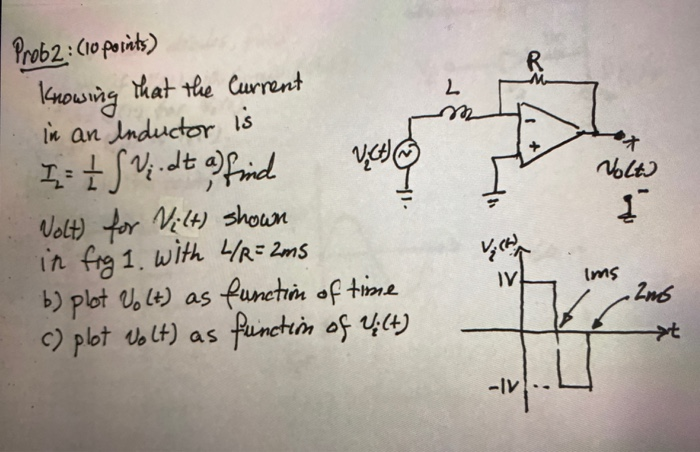 Prob2: (10 points)
Knowing that the Current
in an Inductor is
I_L = 1/L ∫ Vi . dt a) find
Vo(t) for Vi(t) shown
in fig 1. with L/R = 2ms
b) plot Vo(t) as function of time
c) plot Vo(t) as function of Vi(t)
R
L
Vi(t)
-
+
+
Vo(t)
-
Vi(t)
1V
1ms
2ms
t
-1V